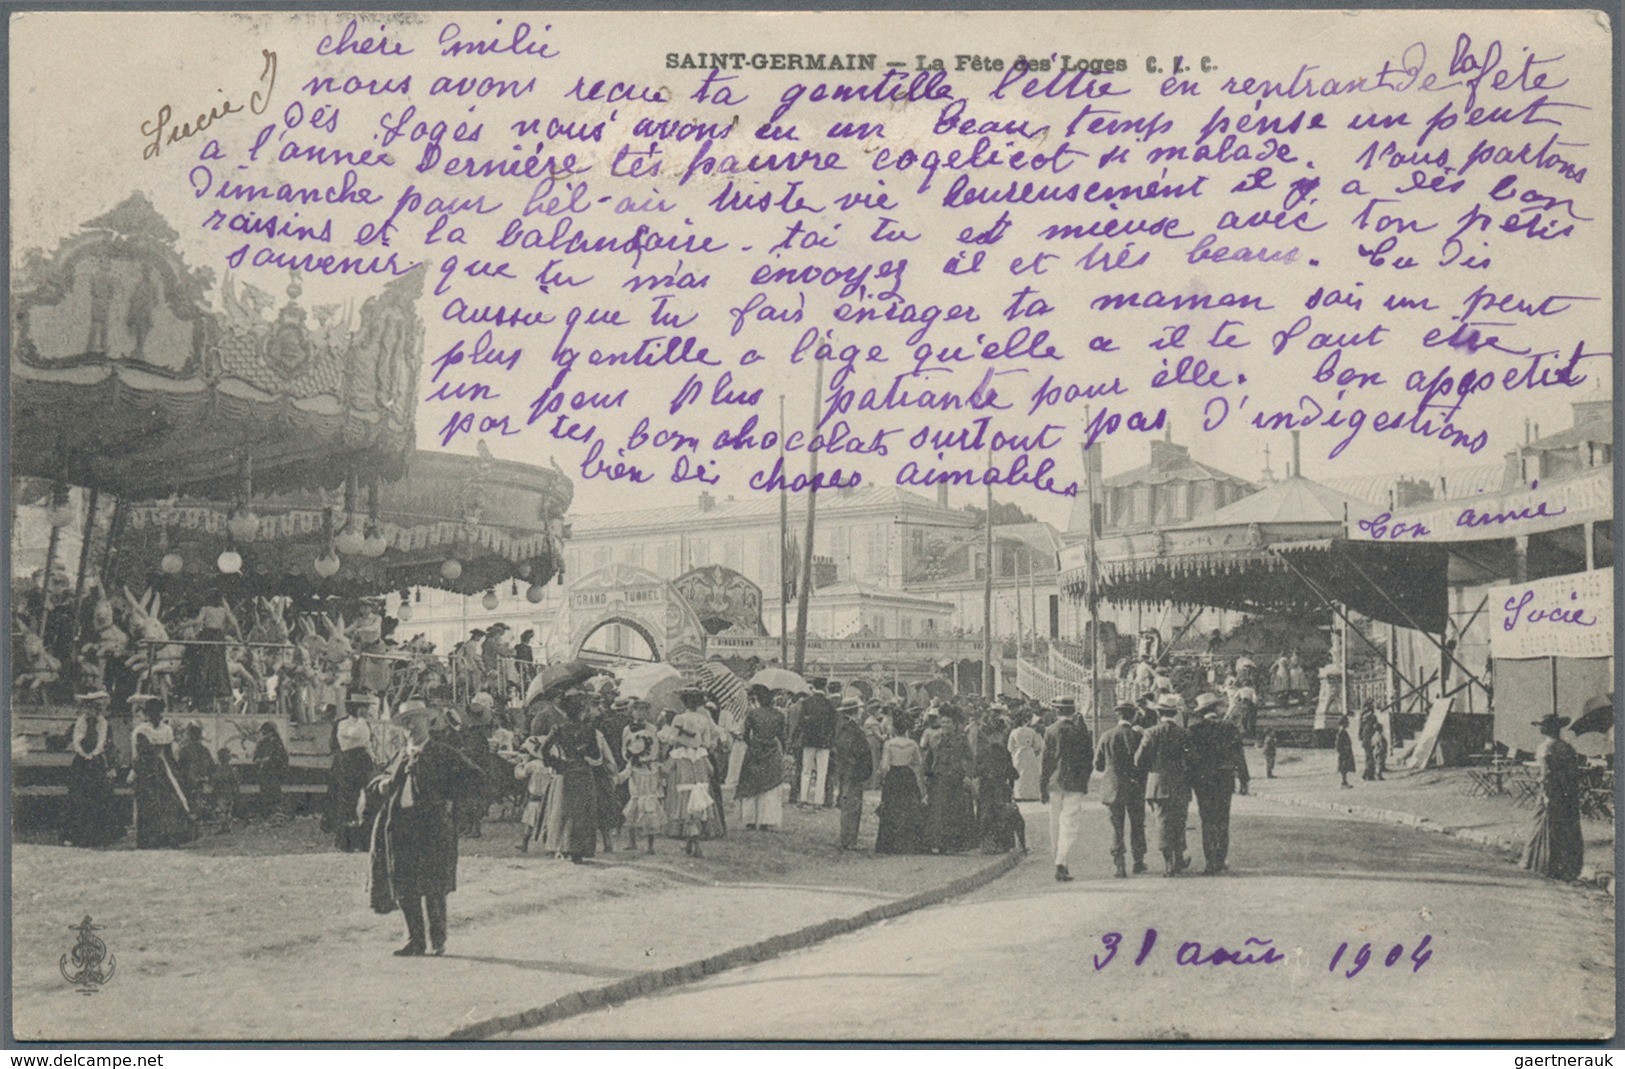 chère Emilie
SAINT-GERMAIN – La Fête des Loges C. L. C.
Lucie J
nous avons reçue ta gentille léttre en rentrant De la fête
Dés Logés nous avons eu un beau temp pénse un peut
a l'année Dernière tés pauvre cogelicot si malade. Nous partons
Dimanche pour bél-air triste vie heureusement il y a dés bon
raisins et la balansoire - toi tu est mieux avéc ton petis
souvenir que tu m'as envoyez il et trés beaux. tu Dis
aussie que tu fais énrager ta maman sois un peut
plus gentille a l'âge qu'elle a il te faut etre
un peux plus patiante pour élle. bon appetit
par tes bon chocolats surtout pas D'indigestions
bien Dés choses aimables
ton amie
Lucie
GRAND TUNNEL
31 août 1904
delcampe.net
gaertnerauk